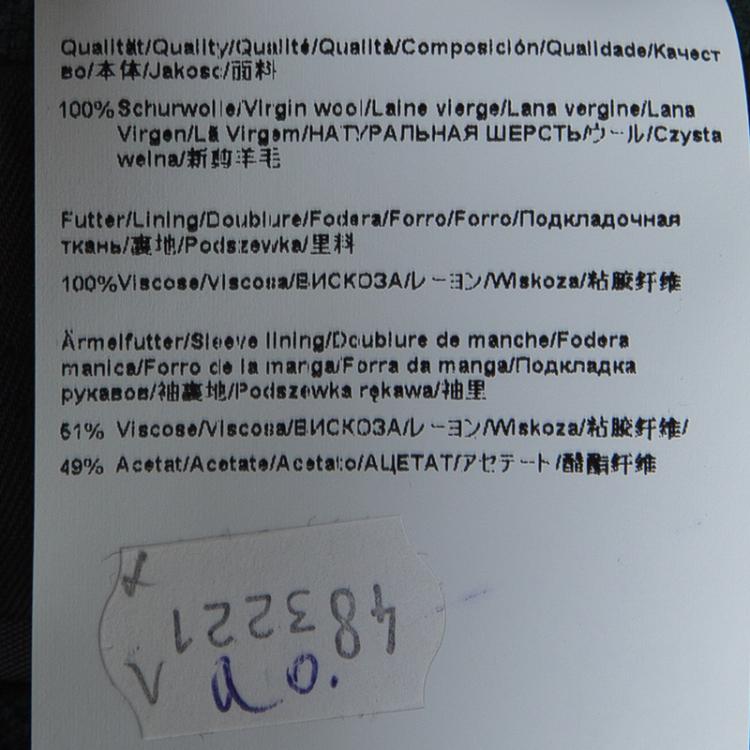 Qualität/Quality/Qualité/Qualità/Composición/Qualidade/Качест
во/本体/Jakosc/面料
100% Schurwolle/Virgin wool/Laine vierge/Lana vergine/Lana
Virgen/Lã Virgem/НАТУРАЛЬНАЯ ШЕРСТЬ/ウール/Czysta
welna/新剪羊毛
Futter/Lining/Doublure/Fodera/Forro/Forro/Подкладочная
ткань/裏地/Podszewka/里料
100%Viscose/Viscosa/ВИСКОЗА/レーヨン/Wiskoza/粘胶纤维
Ärmelfutter/Sleeve lining/Doublure de manche/Fodera
manica/Forro de la manga/Forra da manga/Подкладка
рукавов/袖裏地/Podszewka rękawa/袖里
51% Viscose/Viscosa/ВИСКОЗА/レーヨン/Wiskoza/粘胶纤维/
49% Acetat/Acetate/Acetato/АЦЕТАТ/アセテート/醋酯纤维
483221
a o.